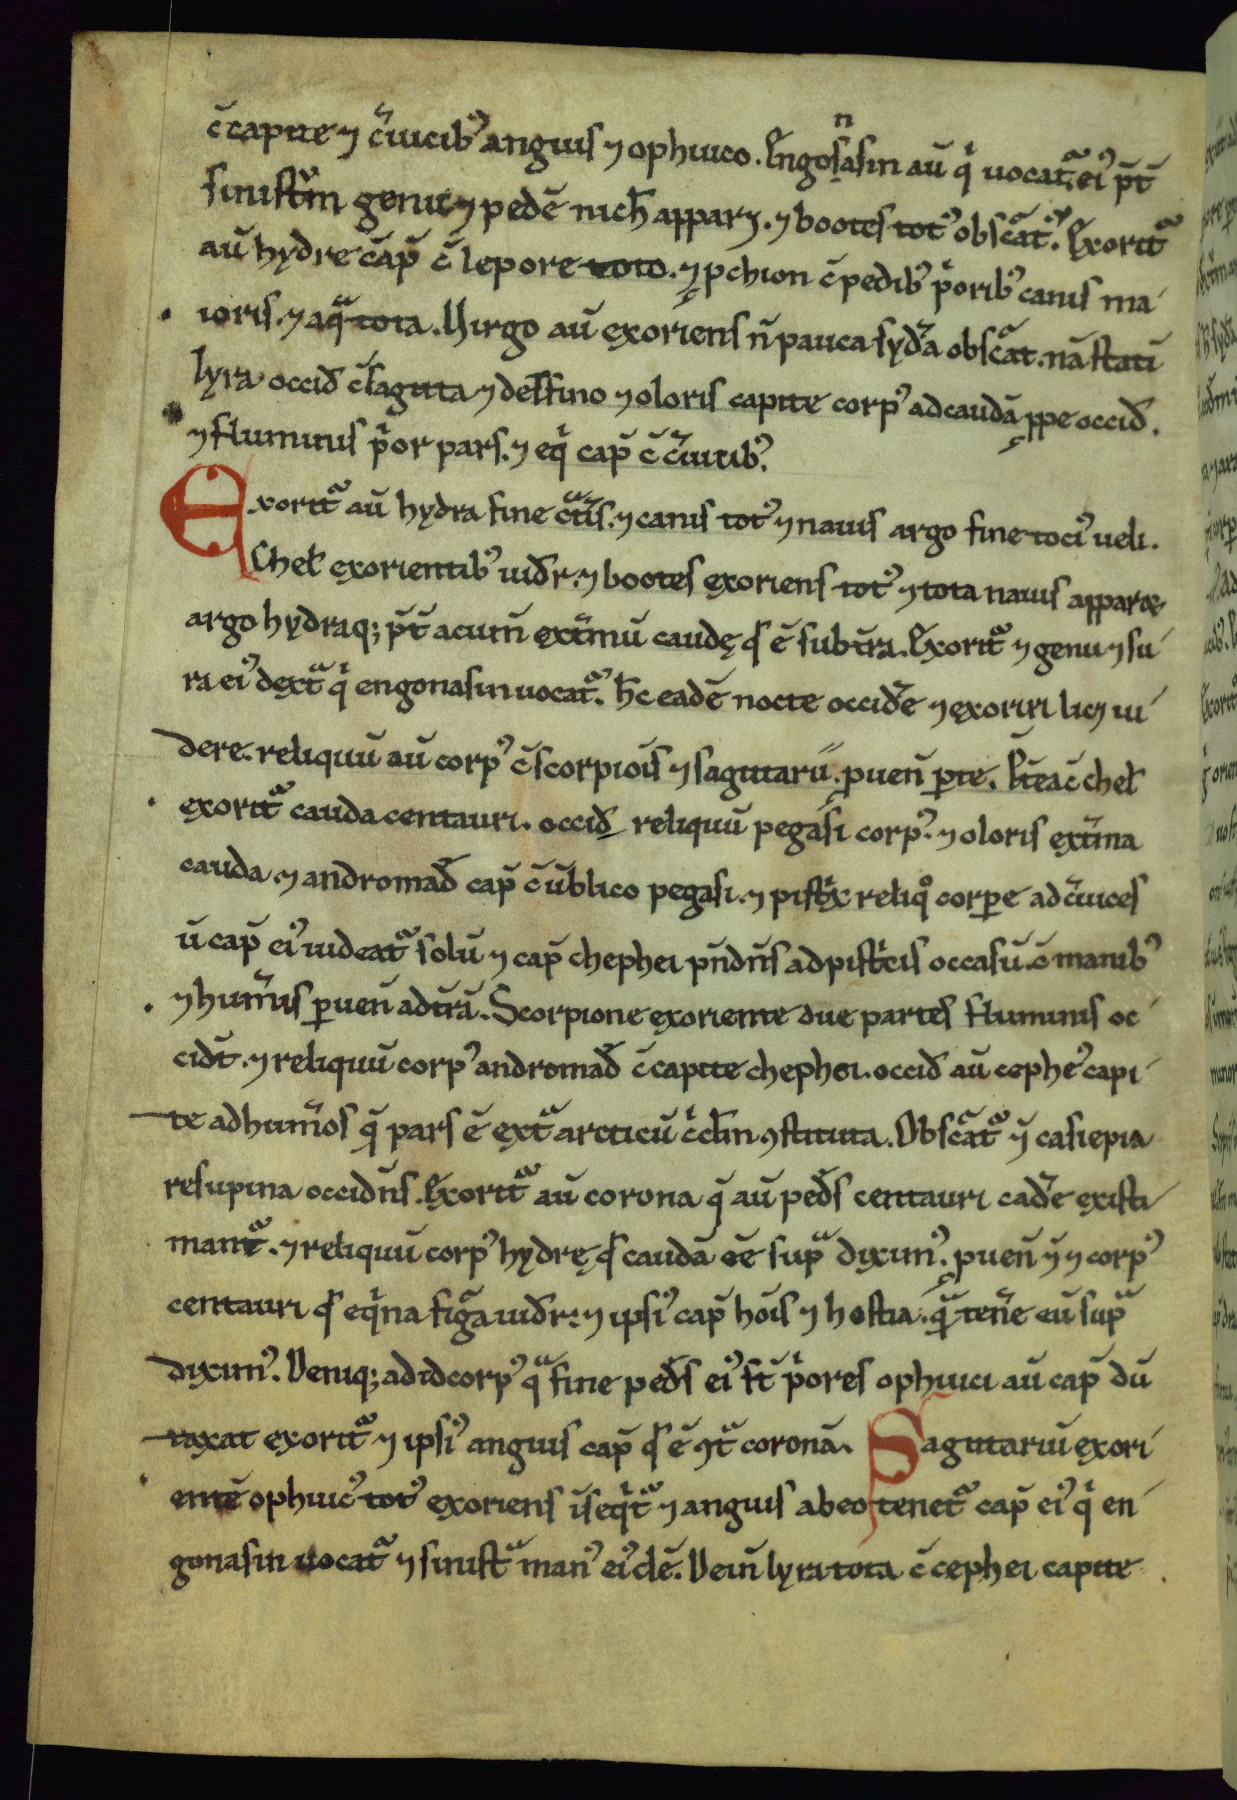 c̄ capite ⁊ c̄uicibꝰ anguis ⁊ ophiuco. Engosasin aū qͥ uocatᷓ. eiꝰ p̄t̄
sinistrͫ genu ⁊ pedē nich̄ appar⁊. ⁊ bootes totꝰ obscāt. Exoritᷓ
aū hydre cap̄ c̄ lepore toto. ⁊ ꝓchion c̄ pedibꝰ pͥoribꝰ canis ma
ioris. ⁊ aqͣ tota. Uirgo aū exoriens n̄ pauca syda̅ obscāt. nā statī
lyra occid̄ c̄ sagitta ⁊ delfino ⁊ oloris capite corpꝰ ad caudā ꝓpe occid̄.
⁊ fluminis pͥor pars. ⁊ eqͥ cap̄ c̄ c̄uicibꝰ.
Exoritᷓ aū hydra fine c̄atīs. ⁊ canis totꝰ ⁊ nauis argo fine tociꝰ ueli.
Chel̄ exorientibꝰ uid̄r. ⁊ bootes exoriens totꝰ ⁊ tota nauis appar&
argo hydraq; p̄t̄ acum̄ ext̄mū caudę qđ ē sub t̄ra. Exoritᷓ ⁊ genu ⁊ su
ra eiꝰ dextͣ qͥ engonasin uocatᷓ. h̄c eadē nocte occid̄e ⁊ exoriri lic⁊ ui
dere. reliquū aū corpꝰ c̄ scorpiōis ⁊ sagittarii ꝓuen̄ ꝑte. Pt̄ea c̄ chel̄
exoritᷓ cauda centauri. occid̄ reliquū pegasi corpꝰ. ⁊ oloris ext̄ma
cauda ⁊ andromad̄ cap̄ c̄ ūblico pegasi. ⁊ pistͥx reliqͦ corꝑe ad c̄uices
ū cap̄ eiꝰ uideatᷓ solū ⁊ cap̄ chephei p̄nd̄ns ad pistͥcis occasū. c̄ manibꝰ
⁊ hum̄is ꝑuen̄ ad t̄rā. Scorpione exoriente due partes fluminis oc
cidt̄. ⁊ reliquū corpꝰ andromad̄ c̄ capite chephei. occid̄ aū cepheꝰ capi
te ad hum̄os q̄ pars ē extͣ arcticū cͥcl̄m ꝯstituta. Obscātᷓ ⁊̄ casiepia
resupina occid̄ns. Exoritᷓ aū corona q̄ aū ped̄s centauri cad̄e existi
mantᷓ. ⁊ reliquū corpꝰ hydrę qđ caudā eē supͣ diximꝰ. ꝓuen̄ ⁊̄ ⁊ corpꝰ
centauri qđ eqͥna figᷓa uid̄r. ⁊ ipsiꝰ cap̄ hoīs ⁊ hostia. qͣ̄ ten̄e eū supͣ
diximꝰ. Deniq; ad id corpꝰ qͣ fine ped̄s eiꝰ st̄ pͥores ophiuci aū cap̄ dū
taxat exoritᷓ ⁊ ipsiꝰ anguis cap̄ qđ ē ꝯtͣ coronā. Sagittariū exori
entē ophiucꝰ totꝰ exoriens īseqͥtᷓ ⁊ anguis ab eo tenetᷓ cap̄ eiꝰ qͥ en
gonasin uocatᷓ ⁊ sinistͣ manꝰ eiꝰdē. Dein̄ lyra tota c̄ cephei capite